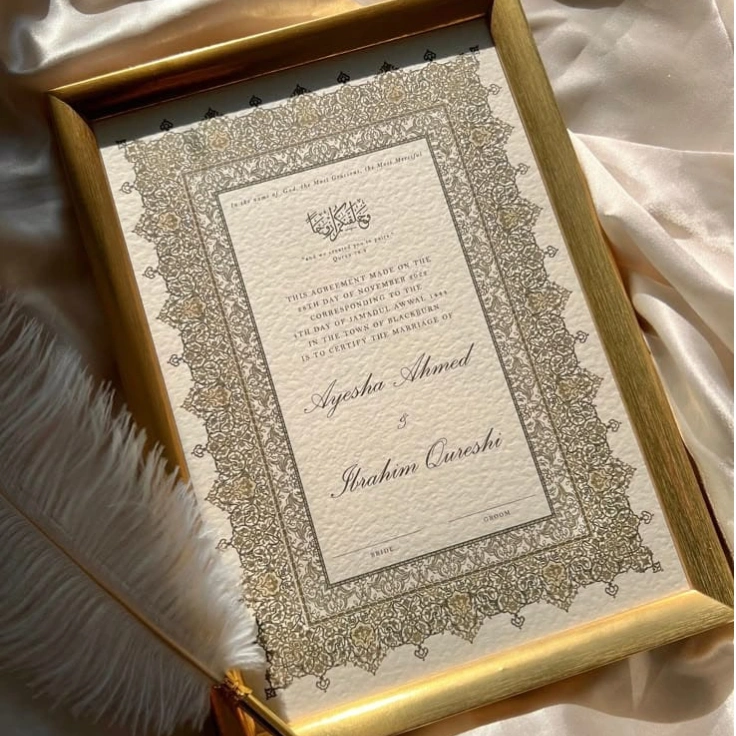 In the name of God, the Most Gracious, the Most Merciful
وخلقناكم أزواجا
"and we created you in pairs"
Quran 78:8
THIS AGREEMENT MADE ON THE
DAY OF NOVEMBER
CORRESPONDING TO THE
5TH DAY OF JAMADUL AWWAL, 1444
IN THE TOWN OF BLACKBURN
IS TO CERTIFY THE MARRIAGE OF
Ayesha Ahmed
&
Ibrahim Qureshi
BRIDE
GROOM